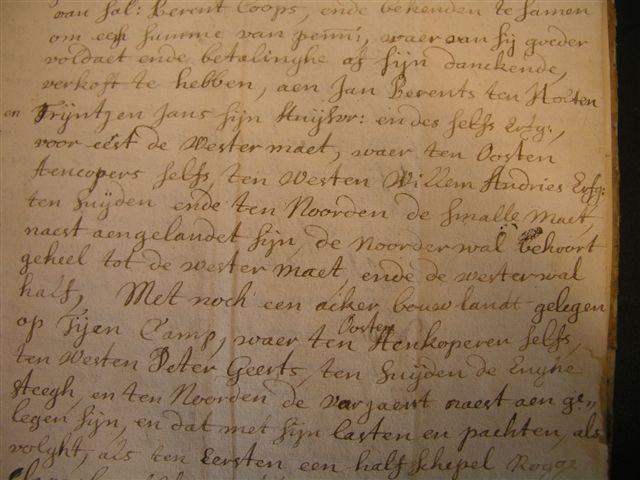 van sal: Berent Coops, ende bekenden te samen
om een summe van penn:, waer van sij goeder
voldaet ende betalinghe af sijn danckende,
verkoft te hebben, aen Jan Berents ten Holten
en Trijntgen Jans sijn Huijsvr: en des selfs Erfg:,
voor eerst de Wester maet, waer ten Oosten
Aencopers selfs, ten Westen Willem Andries Erfg:
ten suijden ende ten Noorden de smalle Maet,
naest aengelandet sijn, de Noorder wal behoort
geheel tot de Wester Maet, ende de wester wal
half, Met noch een acker bouwlandt gelegen
op Tijen Camp, waer ten Oosten Aenkoperen selfs,
ten Westen Peter Geerts, ten suijden de Enghe
steegh, en ten Noorden de naest aen ge„
legen sijn, en dat met sijn lasten en pachten, als
volght, als ten Eersten een half schepel Rogge